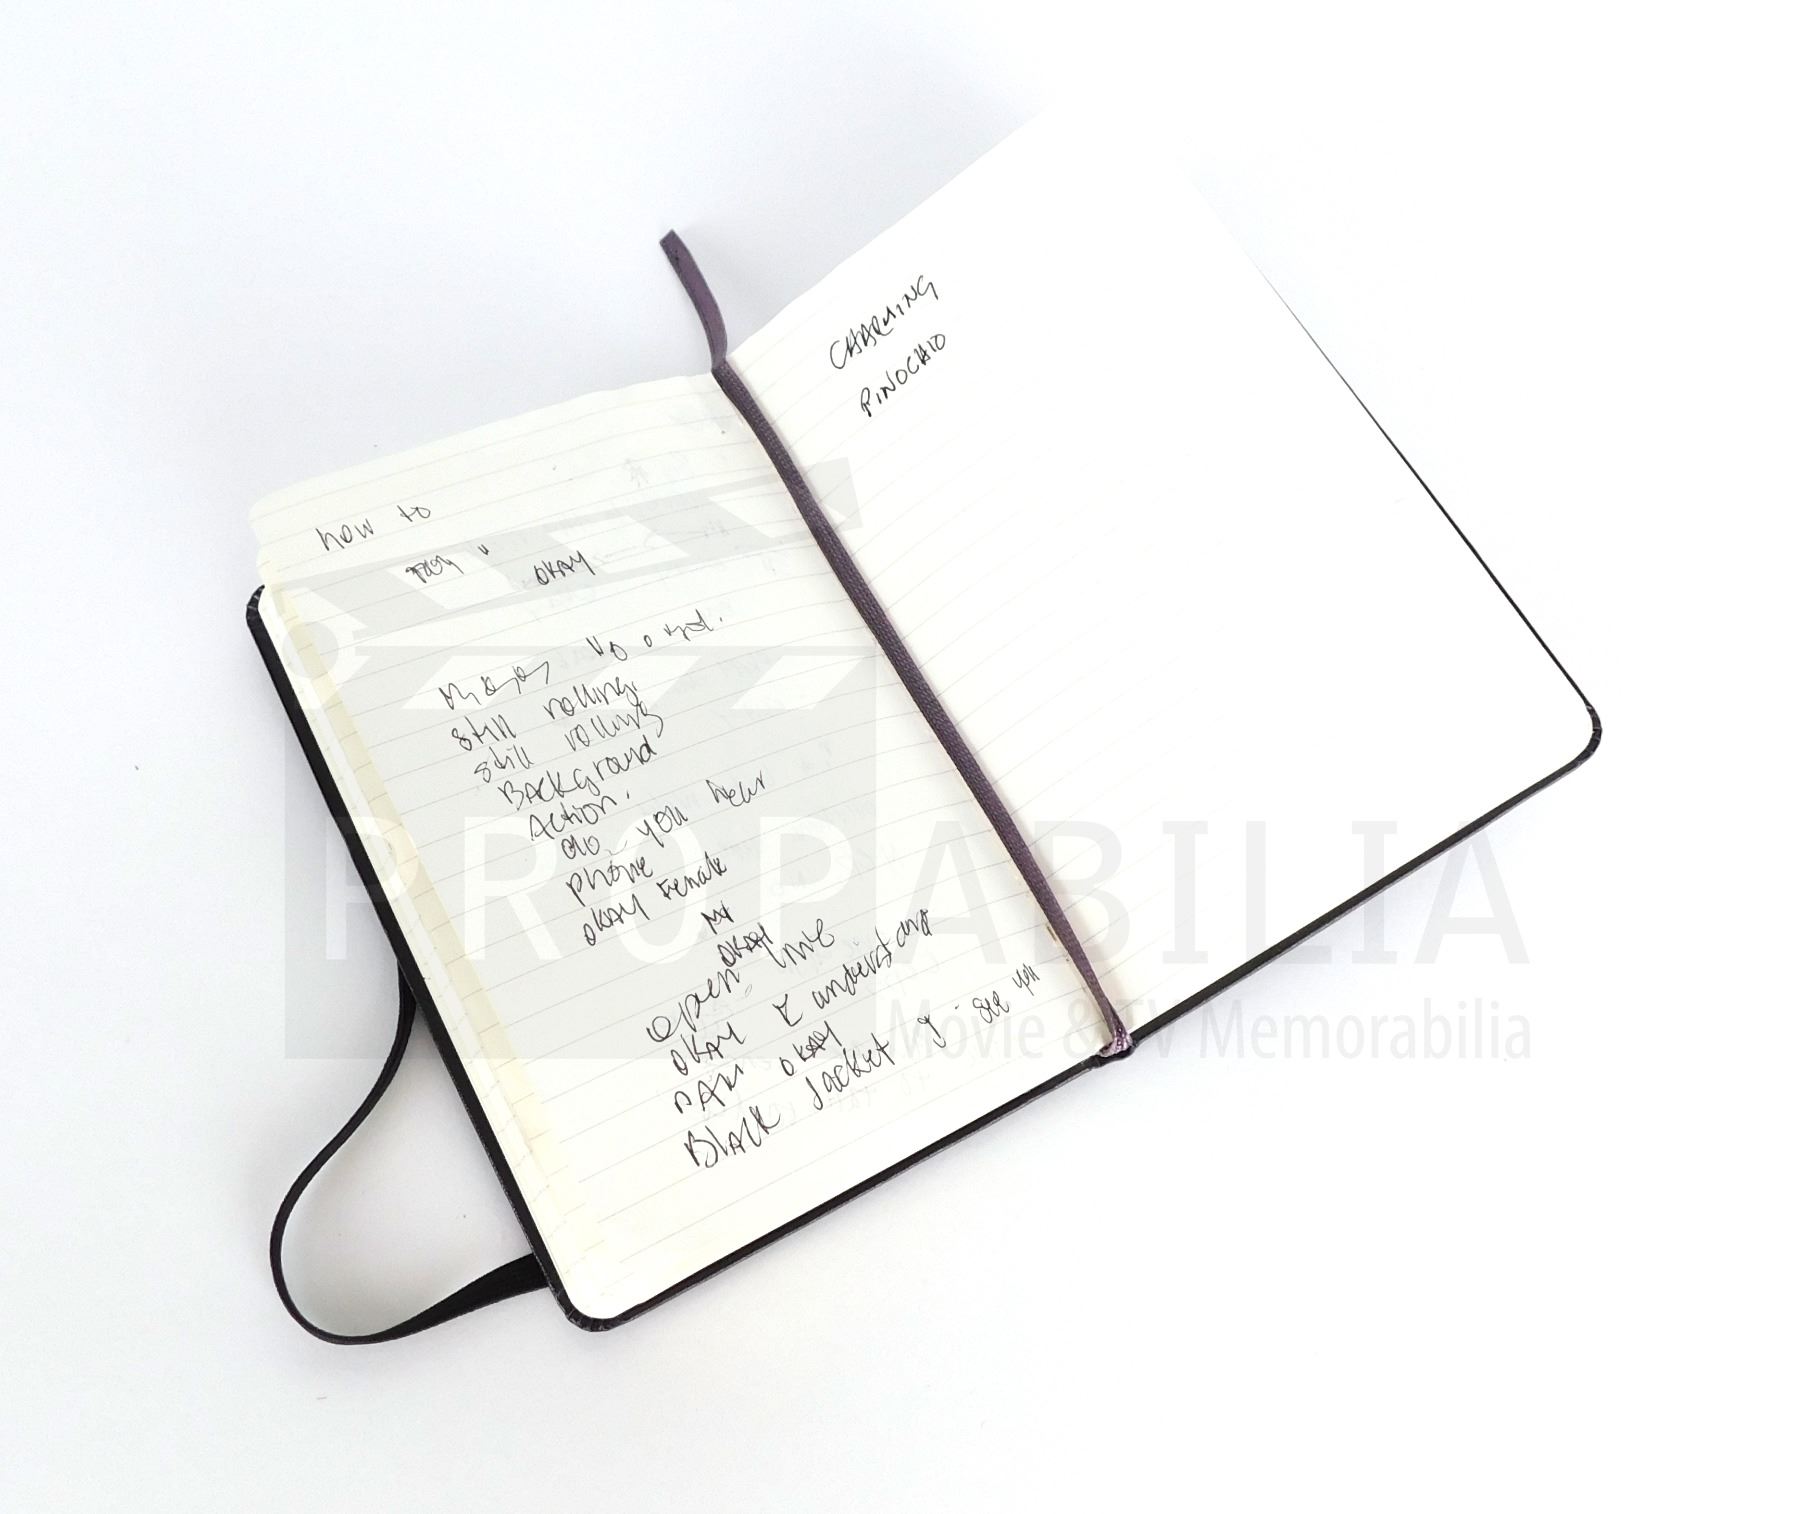 how to
okay
still rolling.
still rolling
Background
Action.
do you hear
phone
okay Female
okay
open line
okay I understand
okay
Black Jacket I see you
CHARMING
PINOCHIO
PROPABILIA
Movie & TV Memorabilia